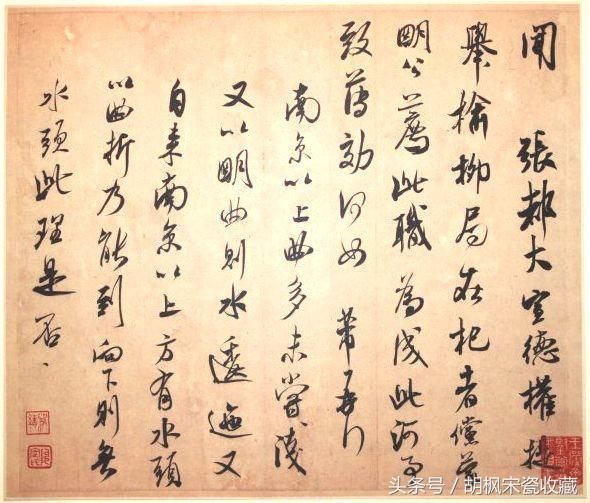 聞 張都大宣德權提
舉榆柳局在杞者儻蒙
明公薦此職為成此河事
致薄効何如 芾再行
南京以上曲多未嘗淺
又以明曲則水逶迤又
自来南京以上方有水頭
以曲折乃能到向下則無
水頭此理是否
头条号 / 胡枫宋瓷收藏